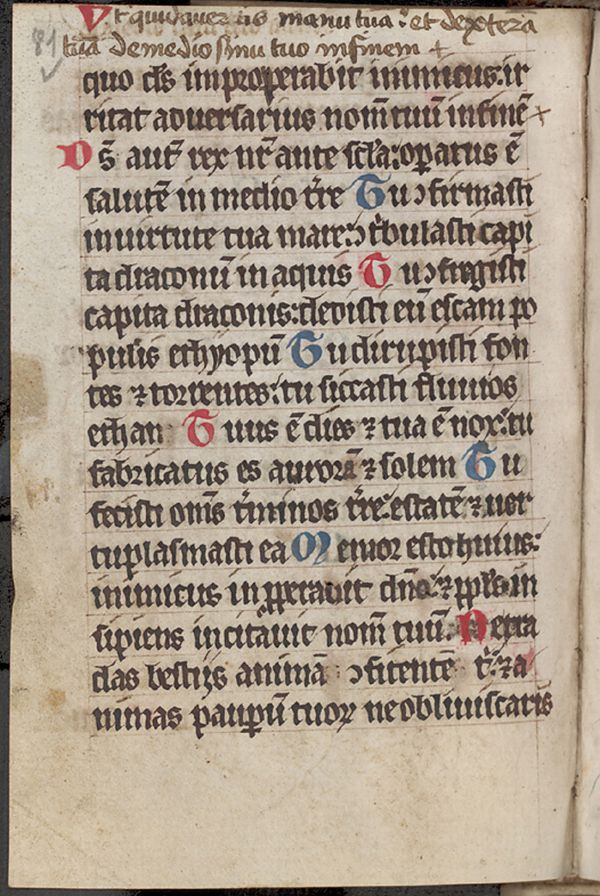 Ut quid avertis manu tua : et dextera
81
tuā de medio sinu tuo in finem +
quo ds̄ improperabit inimicus: ir
ritat adversarius nom̄ tuū in finē +
Ds̄ aut̄ rex nr̄ ante scl̄a: op̄atus ē
salutē in medio tr̄re Tu ɔfirmasti
in virtute tua mare: ɔt̄bulasti capi
ta draconū in aquis Tu ɔfregisti
capita draconis: dedisti eū escam po
pulis ethyopū Tu dirupisti fon
tes ⁊ torrentes: tu siccasti fluvios
ethan Tuus ē dies ⁊ tua ē nox: tu
fabricatus es aurorā ⁊ solem Tu
fecisti om̄s t̄minos tr̄re: estatē ⁊ ver
tu plasmasti ea Memor esto huius:
inimicus inp̄peravit dn̄o: ⁊ ppl̄s in
sipiens incitavit nom̄ tuū. Ne tra
das bestijs animā ɔfitentē t̄: ⁊ a
nimas paup̄ū tuoꝝ ne obliviscaris